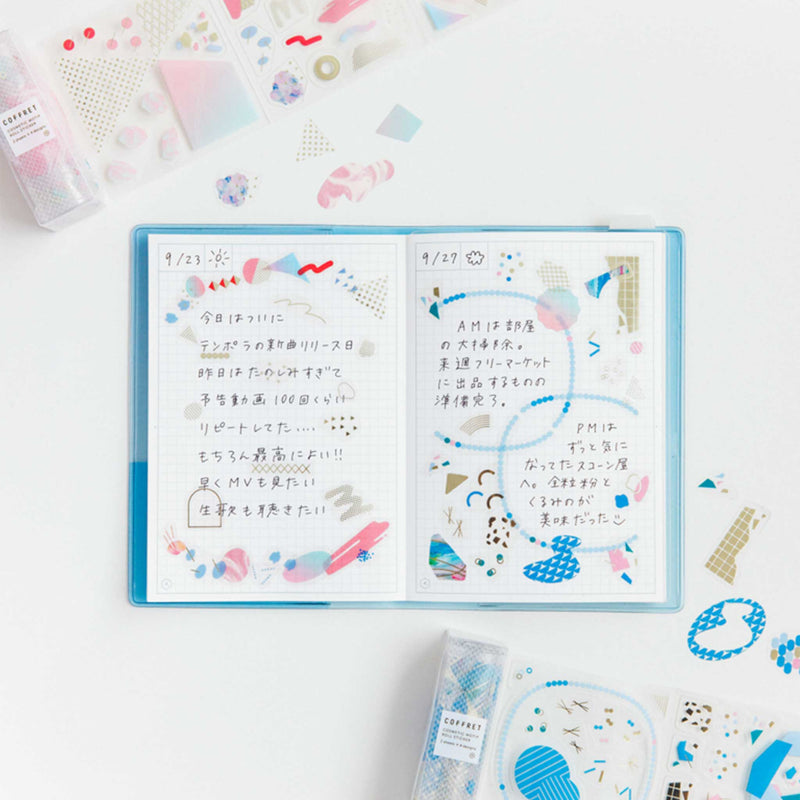 COFFRET
COSMETIC MOTIF
ROLL STICKER
9/23
今日はついに
テンポラの新曲リリース日
昨日はたのしみすぎて
予告動画100回くらい
リピートしてた....
もちろん最高によい!!
早くMVも見たい
生歌も聴きたい
9/27
AMは部屋
の大掃除。
来週フリーマーケット
に出品するものの
準備完了。
PMは
ずっと気に
なってたスコーン屋
へ。全粒粉と
くるみのが
美味だった
COFFRET
COSMETIC MOTIF
ROLL STICKER